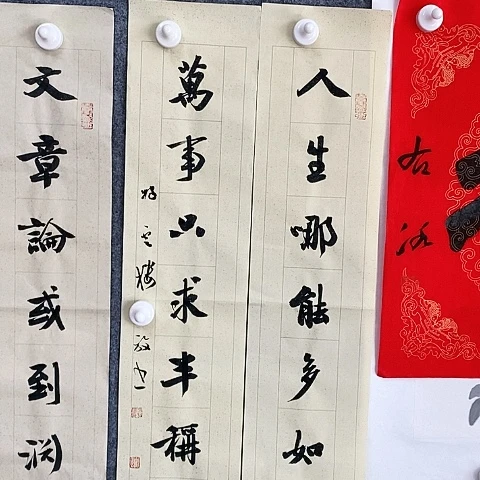 人生哪能多如
萬事只求半稱
文章論或到淵